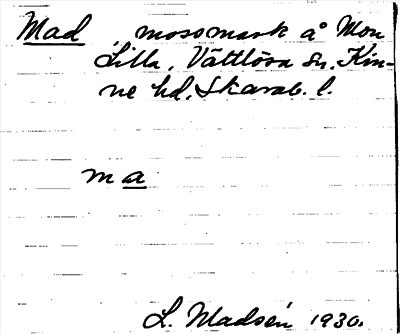 Mad, mossmark å Mon
Lilla, Vättlösa sn. Kin-
ne hd, Skarab. l.
ma
L. Madsén 1930.